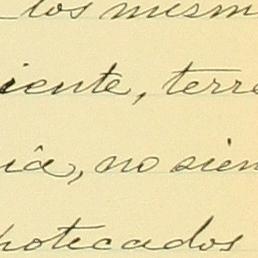 los mism
iente, terre
iâ, no sien
potecados